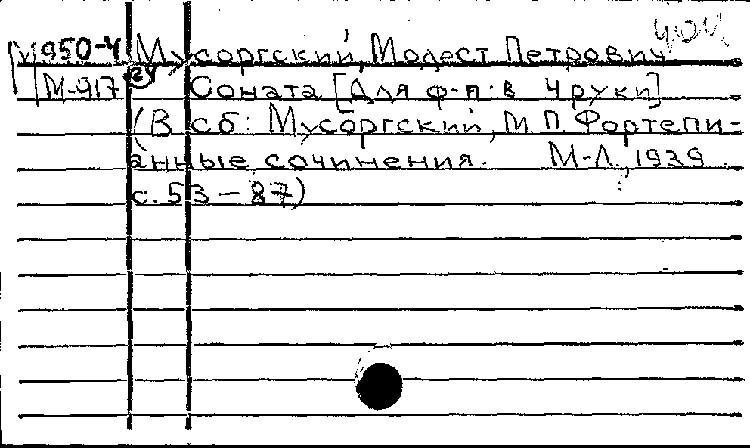 М950-4 Мусоргский, Модест Петрович
М-917 Соната [Для ф-п: в 4 руки]
(В сб: Мусоргский, М.П. Фортепи-
анные сочинения. М-Л., 1929
с. 53 – 87)